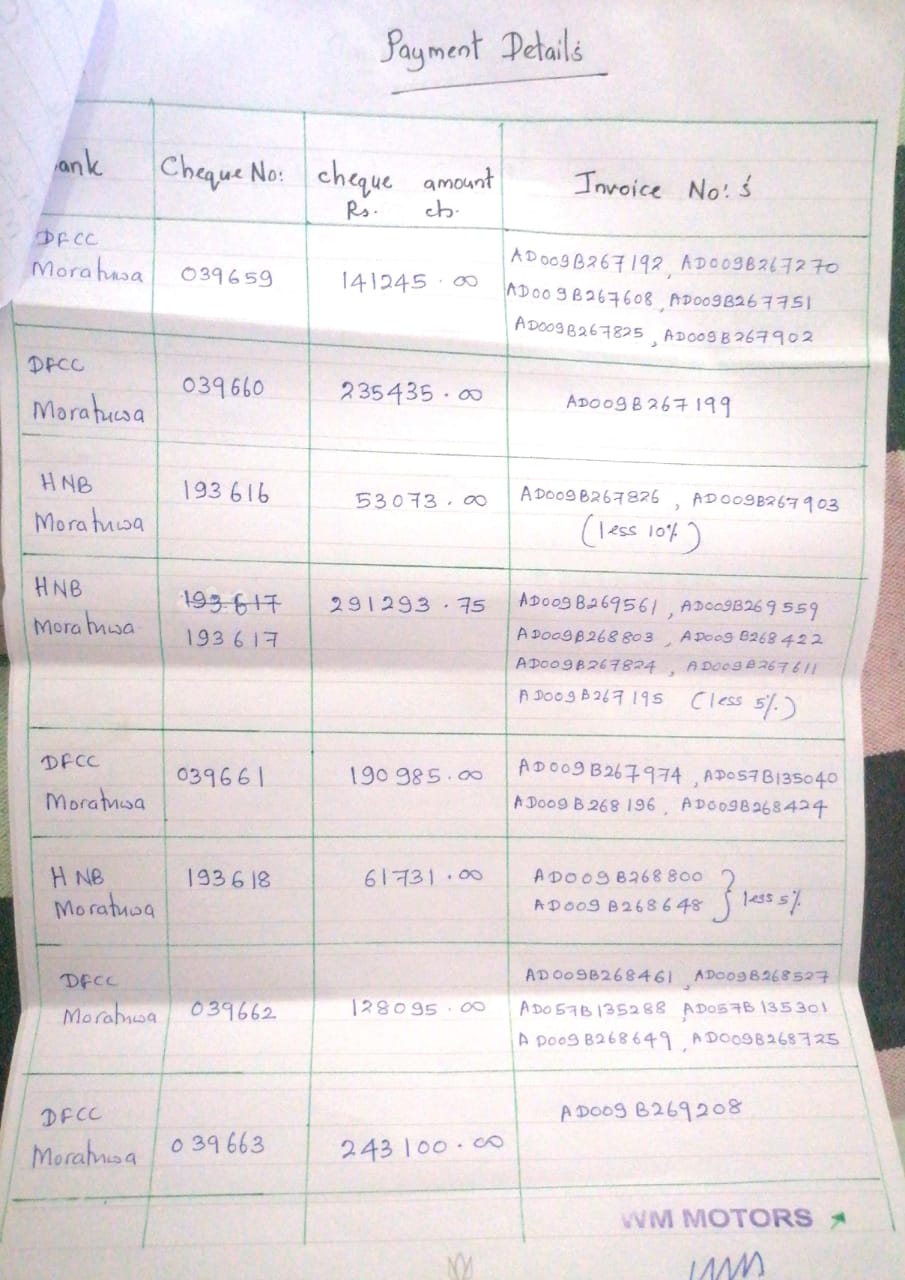 Payment Details
ank Cheque No: cheque amount Invoice No:'s
Rs. cts.
DFCC
Moratuwa 039659 141245.00 AD009B267192, AD009B267270
AD009B267608, AD009B267751
AD009B267825, AD009B267902
DFCC
Moratuwa 039660 235435.00 AD009B267199
HNB
Moratuwa 193616 53073.00 AD009B267826, AD009B267903
(less 10%)
HNB 193617 291293.75 AD009B269561, AD009B269559
Moratuwa 193617 AD009B268803, AD009B268422
AD009B267824, AD009B267611
AD009B267195 (less 5%)
DFCC
Moratuwa 039661 190985.00 AD009B267974, AD057B135040
AD009B268196, AD009B268424
HNB 193618 61731.00 AD009B268800
Moratuwa AD009B268648 } less 5%
DFCC AD009B268461, AD009B268527
Moratuwa 039662 128095.00 AD057B135288, AD057B135301
AD009B268649, AD009B268725
DFCC AD009B269208
Moratuwa 039663 243100.00
WM MOTORS